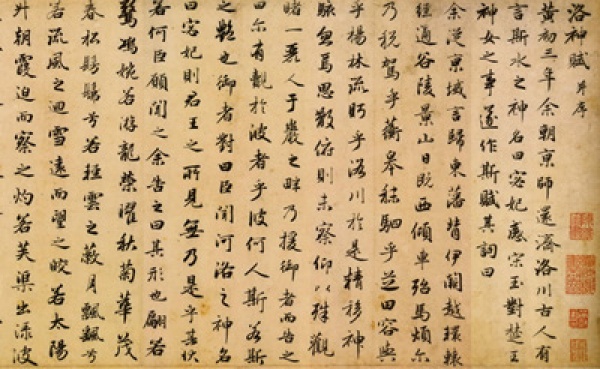 洛神賦 并序
黃初三年余朝京師還濟洛川古人有
言斯水之神名曰宓妃感宋玉對楚王
神女之事遂作斯賦其詞曰
余從京域言歸東藩背伊闕越轘轅
經通谷陵景山日既西傾車殆馬煩尔
乃税駕乎蘅皋秣駟乎芝田容與
乎楊林流眄乎洛川於是精移神
駭忽焉思散俯則未察仰以殊觀
睹一麗人于巖之畔乃援御者而告之
曰尔有覿於彼者乎彼何人斯若斯
之豔也御者對曰臣聞河洛之神名
曰宓妃則君王之所見無乃是乎其狀
若何臣願聞之余告之曰其形也翩若
驚鴻婉若游龍榮曜秋菊華茂
春松髣髴兮若輕雲之蔽月飄颻兮
若流風之迴雪遠而望之皎若太陽
升朝霞迫而察之灼若芙渠出淥波